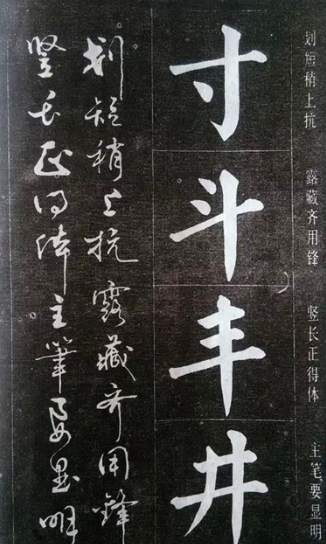 划短稍上抗　露藏齐用锋　竖长正得体　主笔要显明
寸斗丰井
划短稍上抗露藏齐用锋
竖长正得体主笔要显明